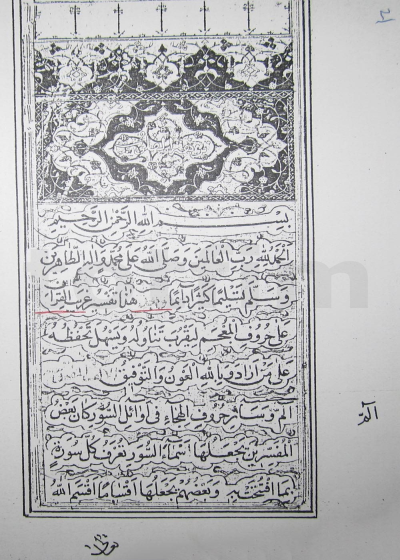 بسم الله الرحمن الرحيم
الحمد لله رب العالمين وصلى الله على محمد واله الطاهرين
وسلم تسليما كثيرا دائما هذا تفسير غريب القران
على حروف المعجم ليقرب تناوله ويسهل تحفظه
على من اراده وبالله العون والتوفيق
الم وسائر حروف الهجاء في اوائل السور كان بعض
المفسرين يجعلها اسماء السور تعرف كل سورة
بما افتتحت به وبعضهم يجعلها اقساما اقسم الله
الم